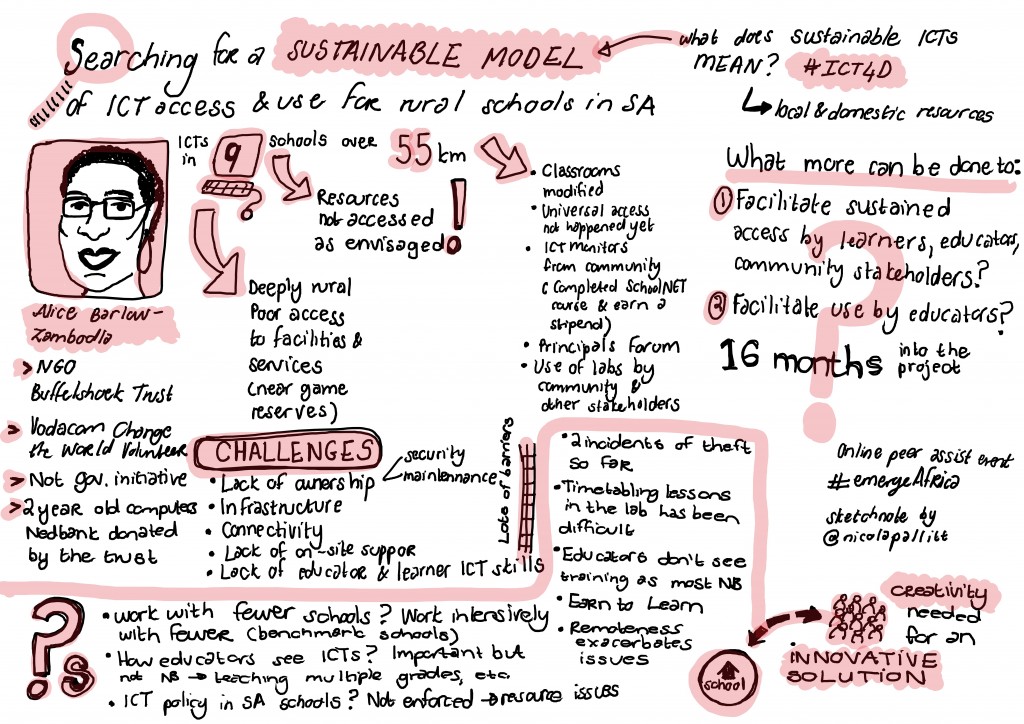 Searching for a SUSTAINABLE MODEL
of ICT access & use for rural schools in SA
what does sustainable ICTs
MEAN? #ICT4D
local & domestic resources
ICTs
in 9 schools over 55 km
Resources
not accessed
as envisaged!
Deeply rural
Poor access
to facilities &
services
(near game
reserves)
• Classrooms
modified
• Universal access
not happened yet
• ICT monitors
from community
( Completed SchoolNET
course & earn a
stipend)
• Principals Forum
• Use of labs by
community &
other stakeholders
What more can be done to:
① Facilitate sustained
access by learners, educators,
community stakeholders?
② Facilitate use by educators?
16 months into the
project
?
Alice Barlow-
Zambodla
> NGO
Buffelshoek Trust
> Vodacom Change
the World Volunteer
> Not gov. initiative
> 2 year old computers
Nedbank donated
by the trust
CHALLENGES
• Lack of ownership
security
maintennance
• Infrastructure
• Connectivity
• Lack of on-site suppor
• Lack of educator & learner ICT skills
Lots of barriers
• 2 incidents of theft
so far
• Timetabling lessons
in the lab has been
difficult
• Educators don't see
training as most NB
• Earn to Learn
• Remoteness
exacerbates
issues
Online peer assist event
#emergeAfrica
sketchnote by
@nicolapallitt
?s
• work with fewer schools? Work intensively
with fewer (benchmark schools)
• How educators see ICTs? Important but
not NB → teaching multiple grades, etc.
• ICT policy in SA schools? Not enforced → resource issues
school
CREATIVITY
needed
for an
INNOVATIVE
SOLUTION